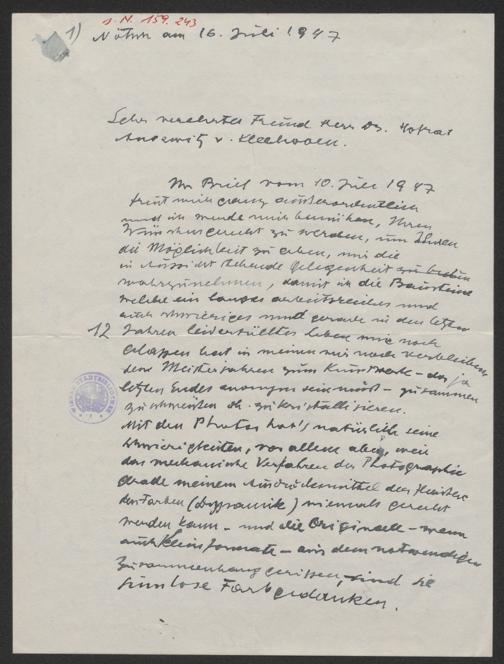 J. N. 159.243
1) Nötsch am 16. Juli 1947
Sehr verehrter Freund Herr Dr. Hofrat
Ankwicz v. Kleehoven.
Ihr Brief vom 10. Juli 1947
freut mich ganz außerordentlich
und ich werde mich bemühen, Ihren
Wünschen gerecht zu werden, um Ihnen
die Möglichkeit zu geben, mir die
in Aussicht stehende Gelegenheit zu
wahrzunehmen, damit ich die Bausteine
welche ein langes arbeitsreiches und
auch schwieriges und gerade in den letzten
12 Jahren leiderfülltes Leben mir noch
gelassen hat in meinen mir noch verbleiben
den Meisterjahren zum Kunstwerk – das ja
letzten Endes anonym sein muß – zusammen
zu schweißen oh. zu kristallisieren.
Mit den Photos hat's natürlich seine
Schwierigkeiten, vor allem aber, weil
das mechanische Verfahren der Photographie
gerade meinem Ausdrucksmittel der
den Farben (Dynamik) niemals gerecht
werden kann – und die Originale – wenn
auch Kleinformate – aus dem notwendigen
Zusammenhang gerissen, sind sie
sinnlose Farbgedanken.